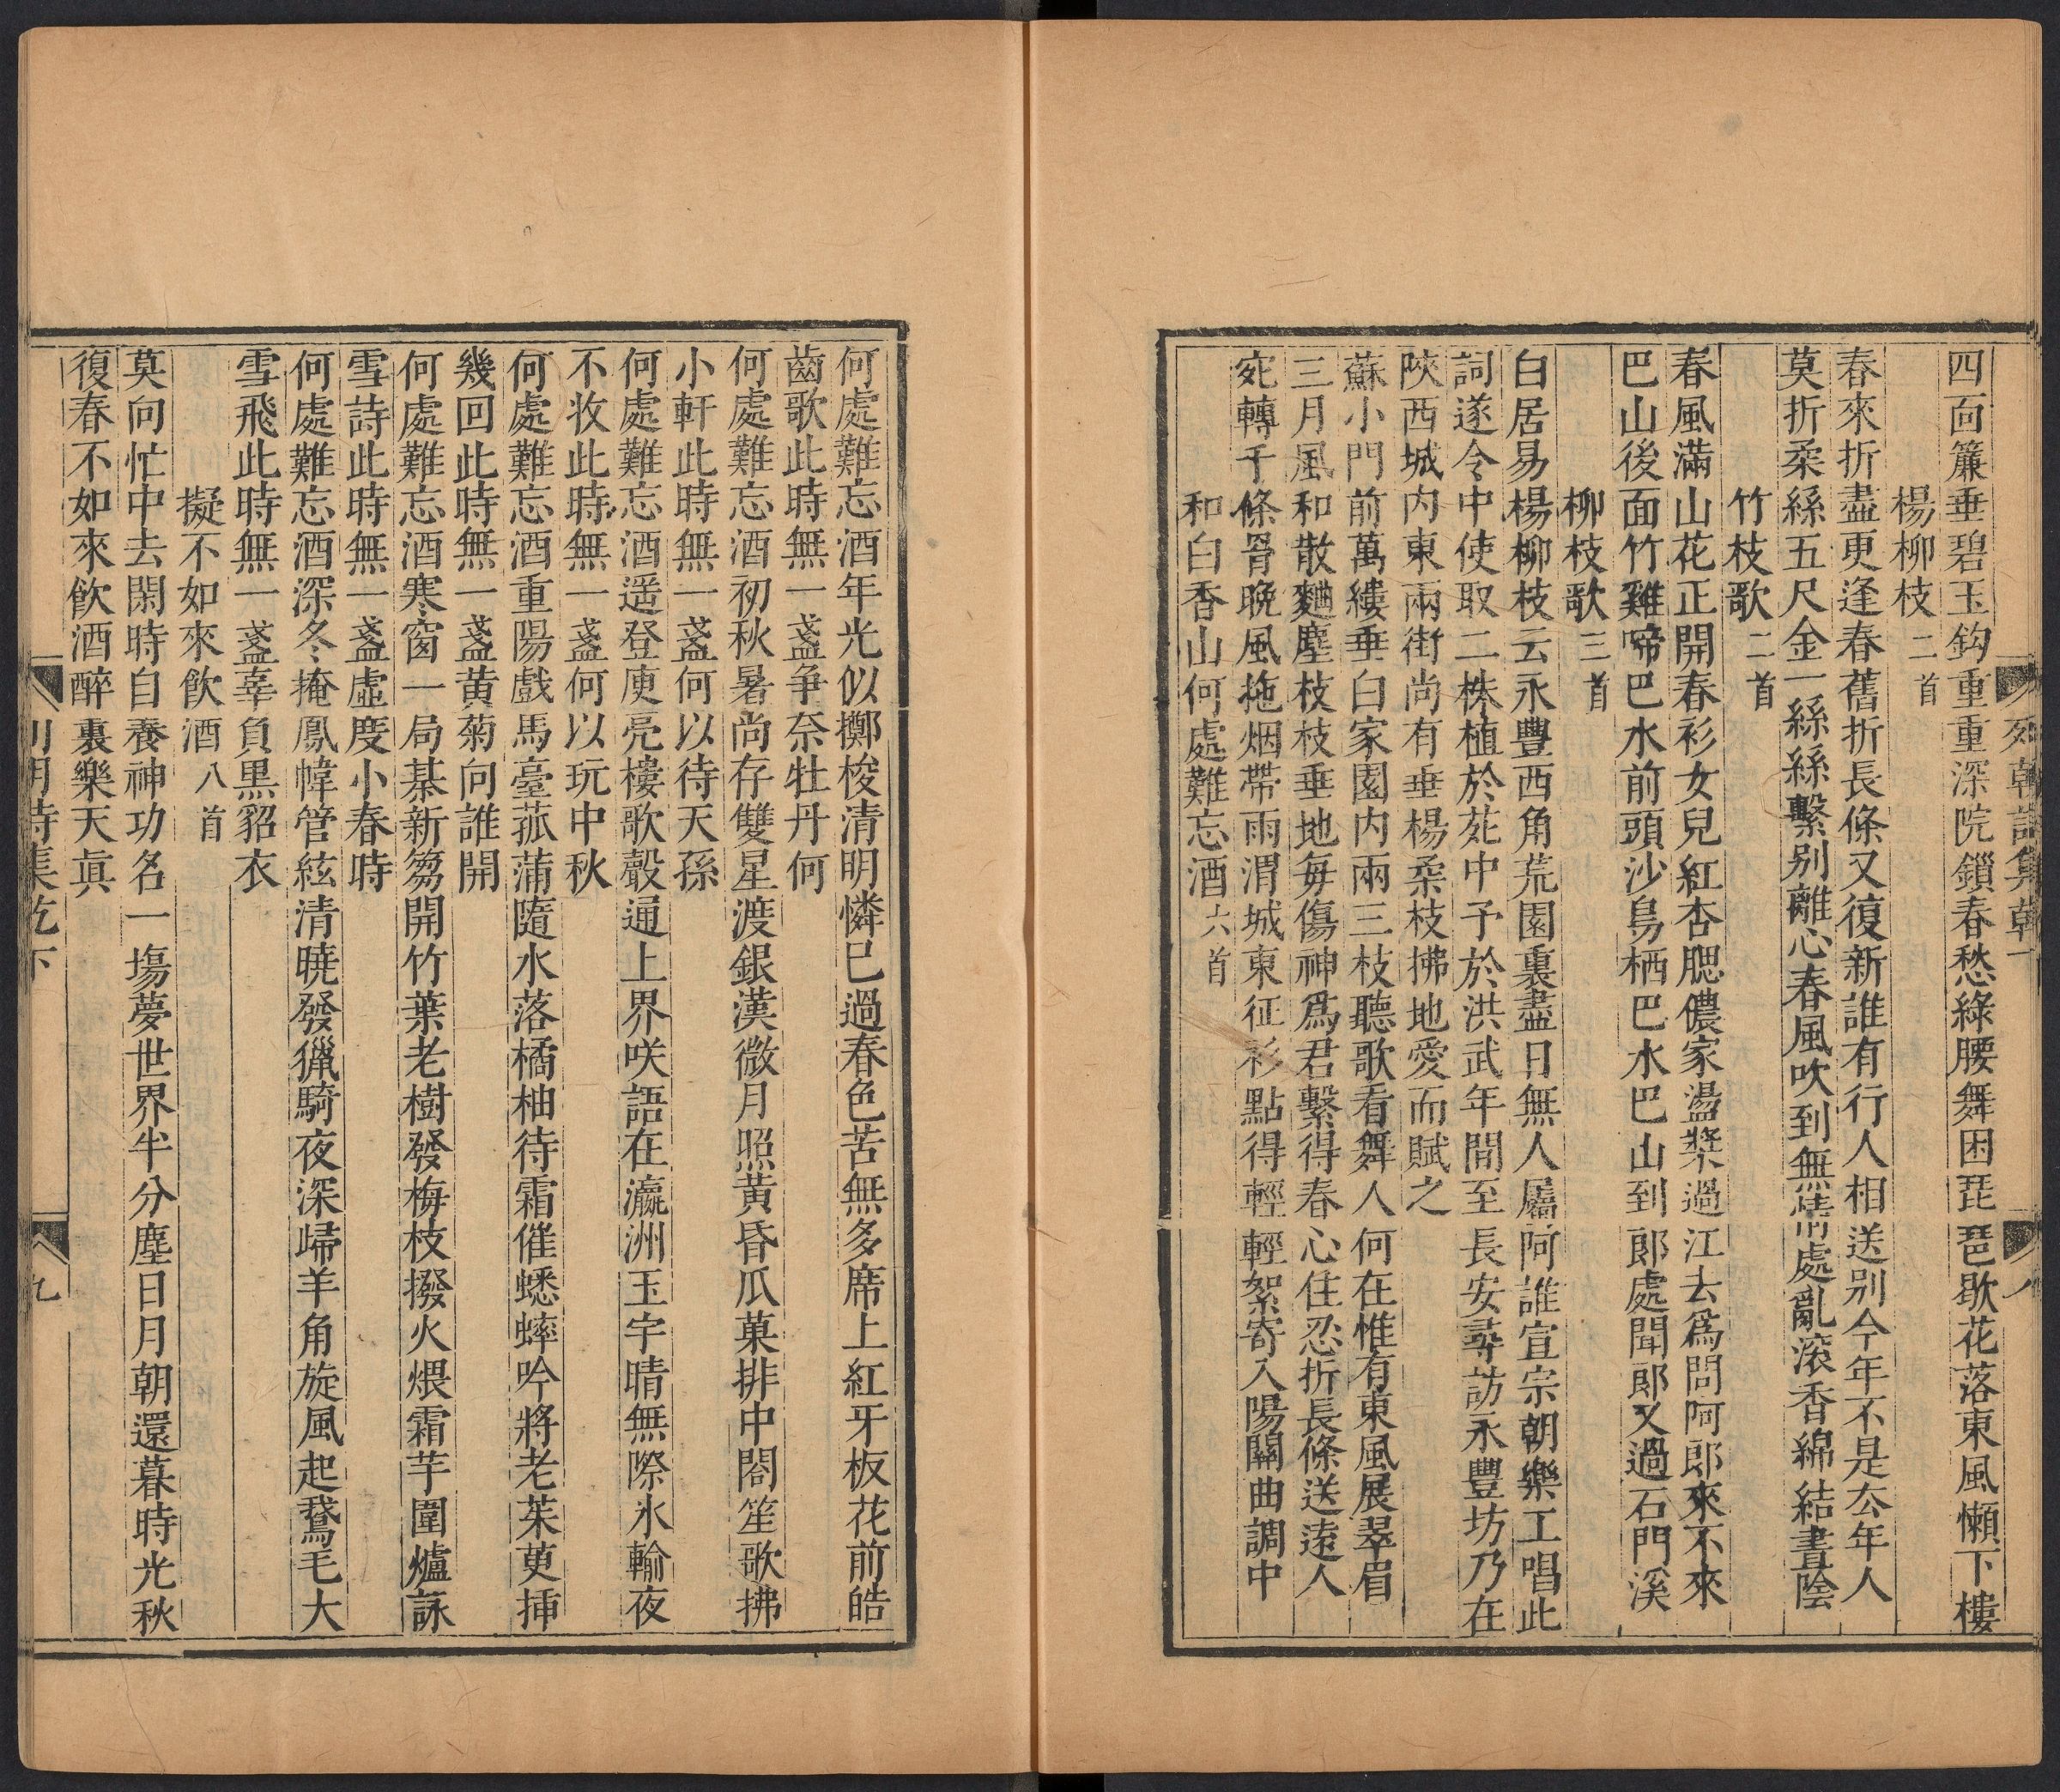 四面簾垂碧玉鈎重重深院鎖春愁綠腰舞困琵琶歇花落東風懶下樓
楊柳枝二首
春來折盡更逢春舊折長條又復新誰有行人相送別今年不是去年人
莫折柔絲五尺金一絲絲繫別離心春風吹到無情處亂滚香綿結晝陰
竹枝歌二首
春風滿山花正開春衫女兒紅杏腮儂家盪槳過江去爲問阿郎來不來
巴山後面竹雞啼巴水前頭沙鳥栖巴水巴山到郎處聞郎又過石門溪
柳枝歌三首
白居易楊柳枝云永豐西角荒園裏盡日無人屬阿誰宣宗朝樂工唱此
詞遂令中使取二株植於苑中予於洪武年間至長安尋訪永豐坊乃在
陝西城内東兩街尚有垂楊柔枝拂地愛而賦之
蘇小門前萬縷垂白家園内兩三枝聽歌看舞人何在惟有東風展翠眉
三月風和散麯塵枝枝垂地每傷神爲君繫得春心住忍折長條送遠人
宛轉千條罥晚風拖烟帶雨渭城東征衫點得輕輕絮寄入陽關曲調中
和白香山何處難忘酒六首
何處難忘酒年光似擲梭清明憐已過春色苦無多席上紅牙板花前皓
齒歌此時無一盞争奈牡丹何
何處難忘酒初秋暑尚存雙星渡銀漢微月照黄昏瓜菓排中閤笙歌拂
小軒此時無一盞何以待天孫
何處難忘酒遥登庾亮樓歌聲通上界咲語在瀛洲玉宇晴無際氷輪夜
不收此時無一盞何以玩中秋
何處難忘酒重陽戲馬臺菰蒲隨水落橘柚待霜催蟋蟀吟將老茱萸揷
幾回此時無一盞黄菊向誰開
何處難忘酒寒窗一局棊新篘開竹葉老樹發梅枝撥火煨霜芋圍爐詠
雪詩此時無一盞虛度小春時
何處難忘酒深冬掩鳳幃管絃清曉發獵騎夜深歸羊角旋風起鵞毛大
雪飛此時無一盞辜負黒貂衣
擬不如來飮酒八首
莫向忙中去閑時自養神功名一塲夢世界半分塵日月朝還暮時光秋
復春不如來飮酒醉裏樂天眞
九